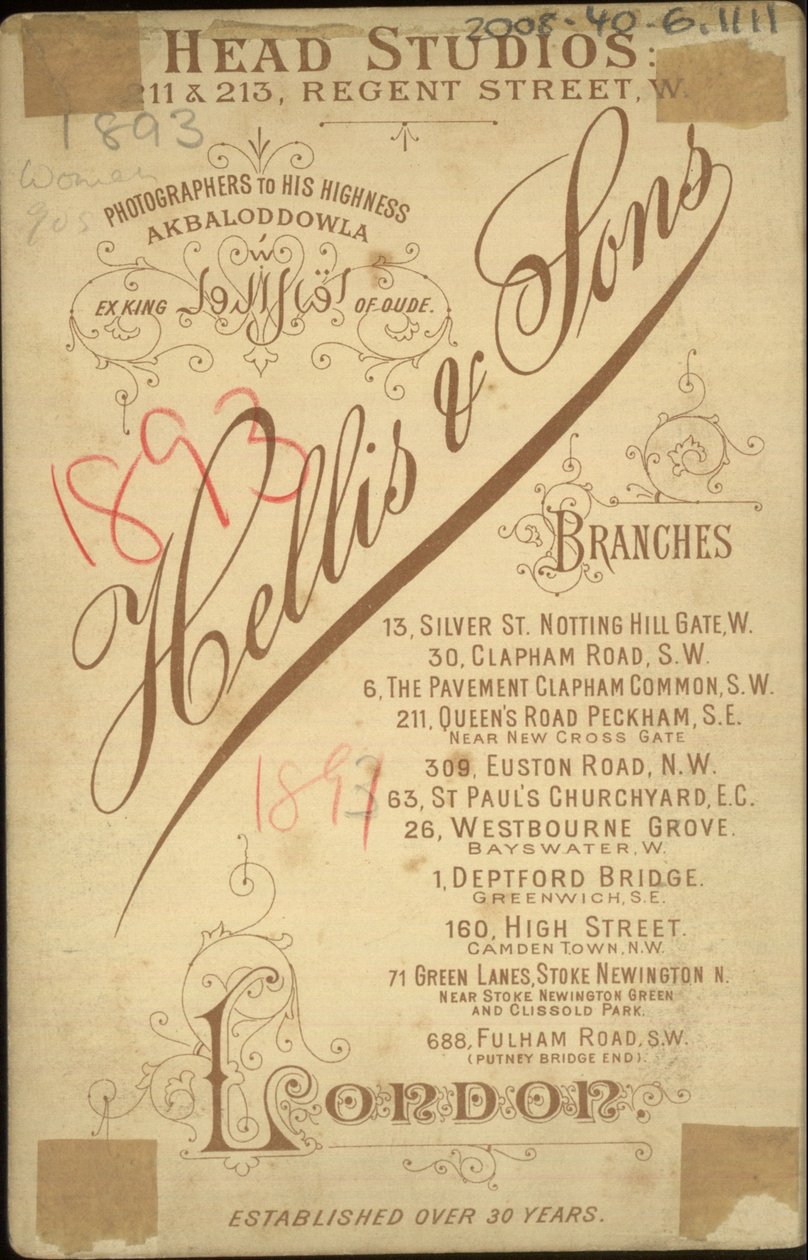 2008·40·6.1111
HEAD STUDIOS:
211 & 213, REGENT STREET, W.
1893
Women
90s
PHOTOGRAPHERS TO HIS HIGHNESS
AKBALODDOWLA
EX KING اقبال الدوله OF OUDE.
Hellis & Sons
1893
BRANCHES
13, SILVER ST. NOTTING HILL GATE, W.
30, CLAPHAM ROAD, S.W.
6, THE PAVEMENT CLAPHAM COMMON, S.W.
211, QUEEN'S ROAD PECKHAM, S.E.
NEAR NEW CROSS GATE
309, EUSTON ROAD, N.W.
1893
63, ST PAUL'S CHURCHYARD, E.C.
26, WESTBOURNE GROVE.
BAYSWATER, W.
1, DEPTFORD BRIDGE.
GREENWICH, S.E.
160, HIGH STREET.
CAMDEN TOWN, N.W.
71 GREEN LANES, STOKE NEWINGTON N.
NEAR STOKE NEWINGTON GREEN
AND CLISSOLD PARK.
688, FULHAM ROAD, S.W.
(PUTNEY BRIDGE END).
LONDON.
ESTABLISHED OVER 30 YEARS.